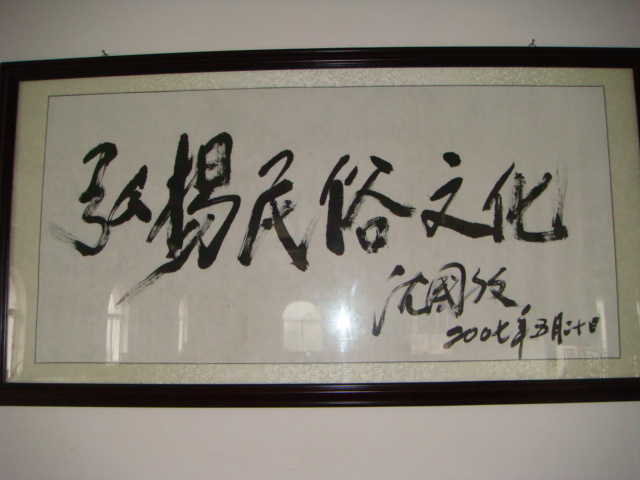 弘扬民俗文化
沈国放
2007年五月二十日